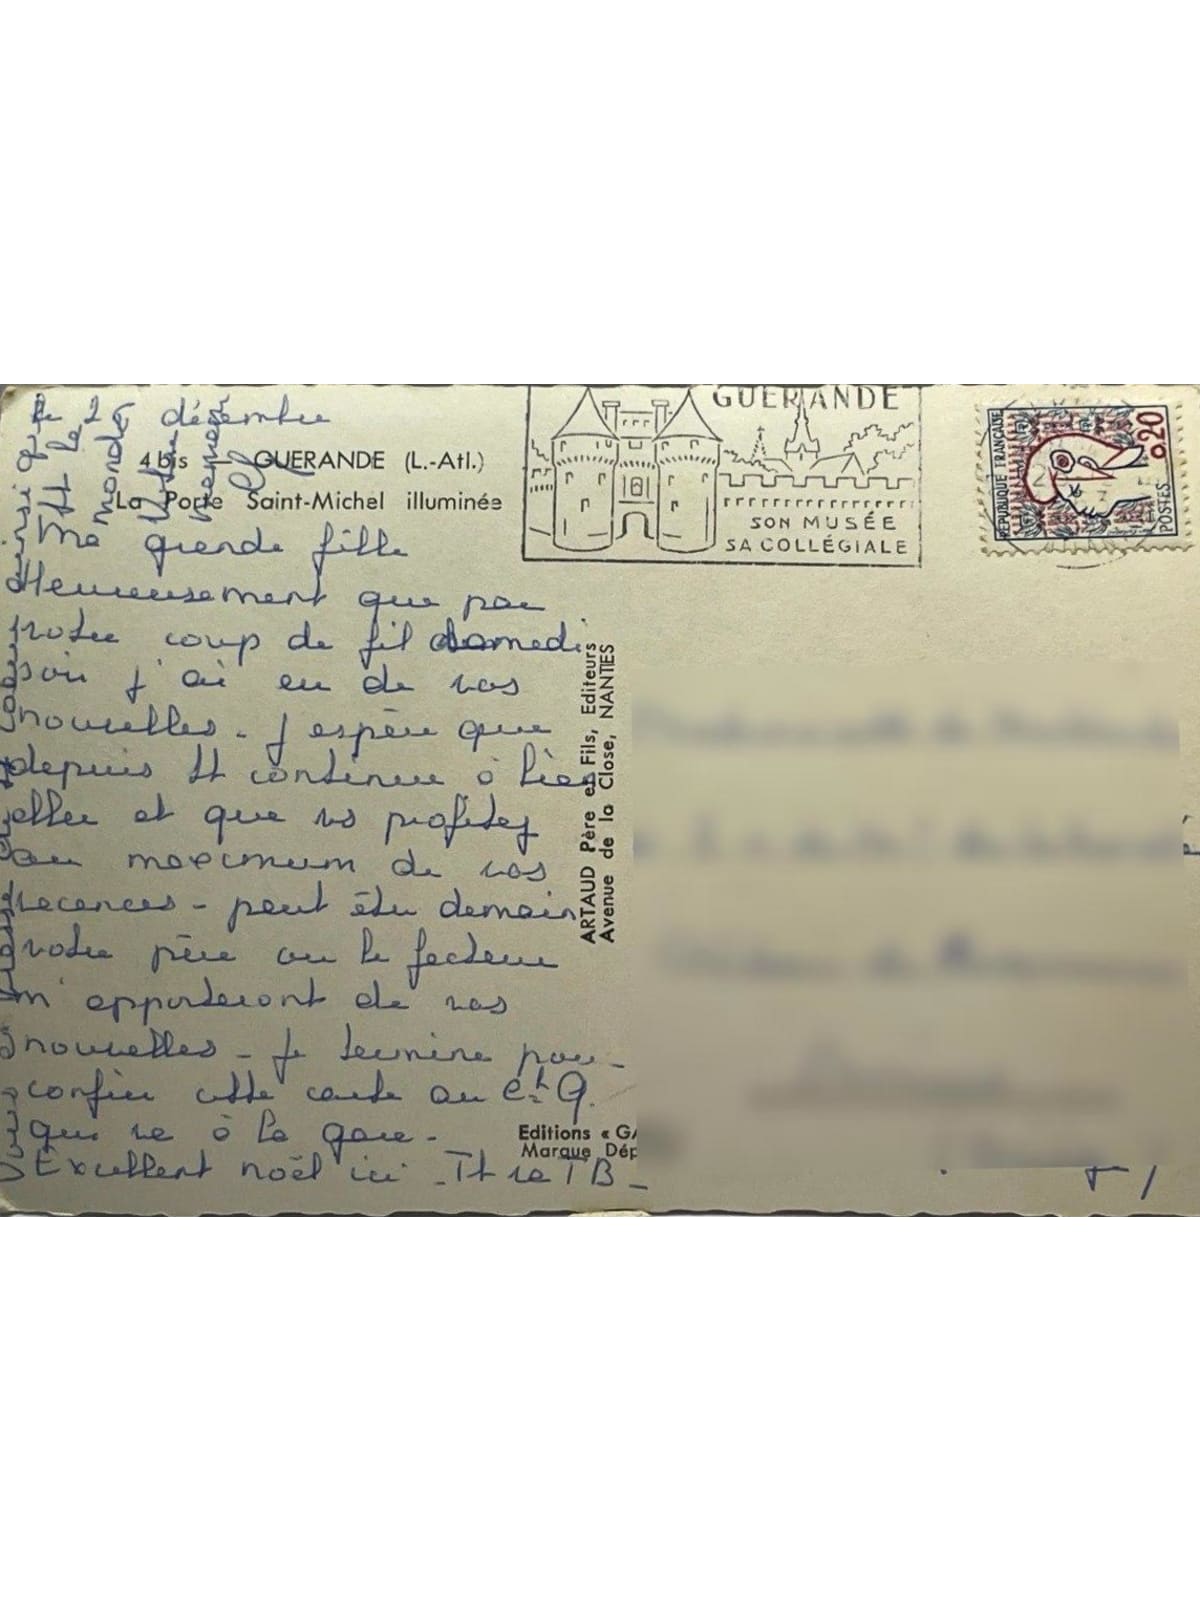 le 26 décembre
4 bis - GUERANDE (L.-Atl.)
La Porte Saint-Michel illuminée
Ma grande fille
Heureusement que par
notre coup de fil samedi
soir j'ai eu de vos
nouvelles - J'espère que
depuis tt continue à bien
aller et que vs profitez
au maximum de vos
vacances - peut être demain
votre père ou le facteur
m'apporteront de vos
nouvelles - Je termine pour
confier cette carte au Ct G.
qui va à la gare -
Excellent noël ici - Tt va TB -
ainsi que
tt le
monde
Votre
memé
ARTAUD Père et Fils, Editeurs
Avenue de la Close, NANTES
Editions « GA
Marque Dép
GUERANDE
SON MUSÉE
SA COLLÉGIALE
REPUBLIQUE FRANÇAISE
0,20
POSTES